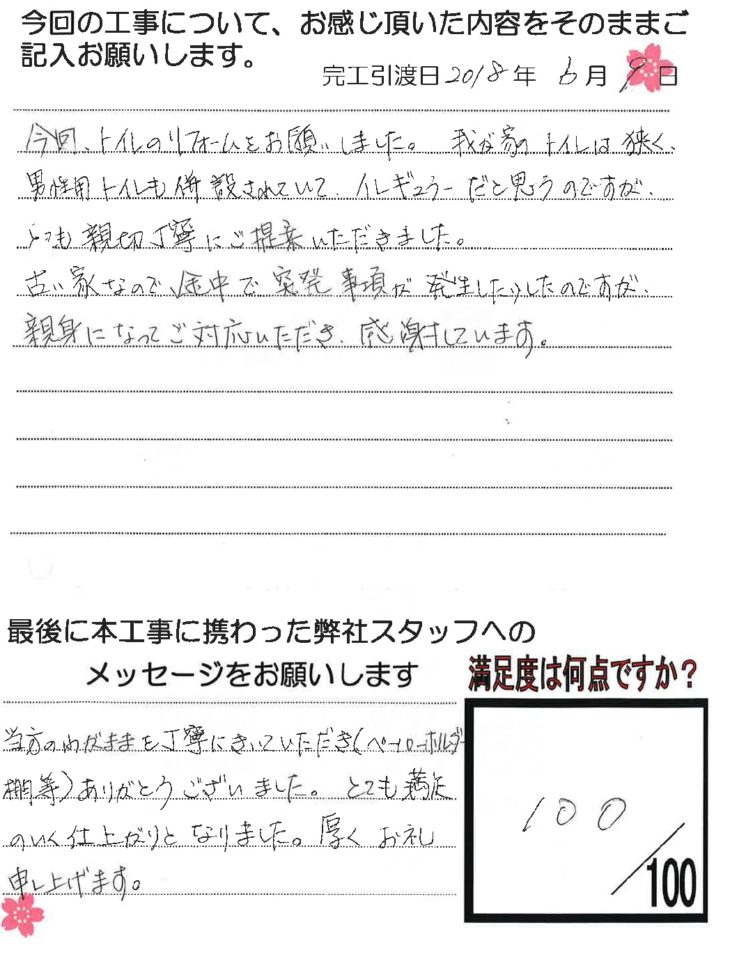 今回の工事について、お感じ頂いた内容をそのままご
記入お願いします。
完工引渡日2018年 6月 9日
今回、トイレのリフォームをお願いしました。 我が家のトイレは狭く、
男性用トイレも併設されていて、イレギュラーだと思うのですが、
とても親切丁寧にご提案いただきました。
古い家なので、途中で突発事項が発生したりしたのですが、
親身になってご対応いただき、感謝しています。
最後に本工事に携わった弊社スタッフへの
メッセージをお願いします
満足度は何点ですか?
当方のわがままを丁寧にきいていただき(ペーパーホルダー
棚等)ありがとうございました。とても満足
のいく仕上がりとなりました。厚くお礼
申し上げます。
100
/100